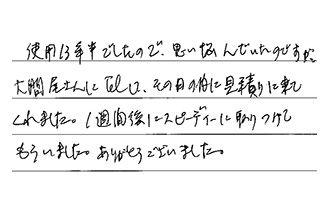 使用13年半でしたので、思い悩んでいたのですが、
大関屋さんにTelし、その日の内に見積りに来て
くれました。1週間後にスピーディーに取りつけて
もらいました。ありがとうございました。